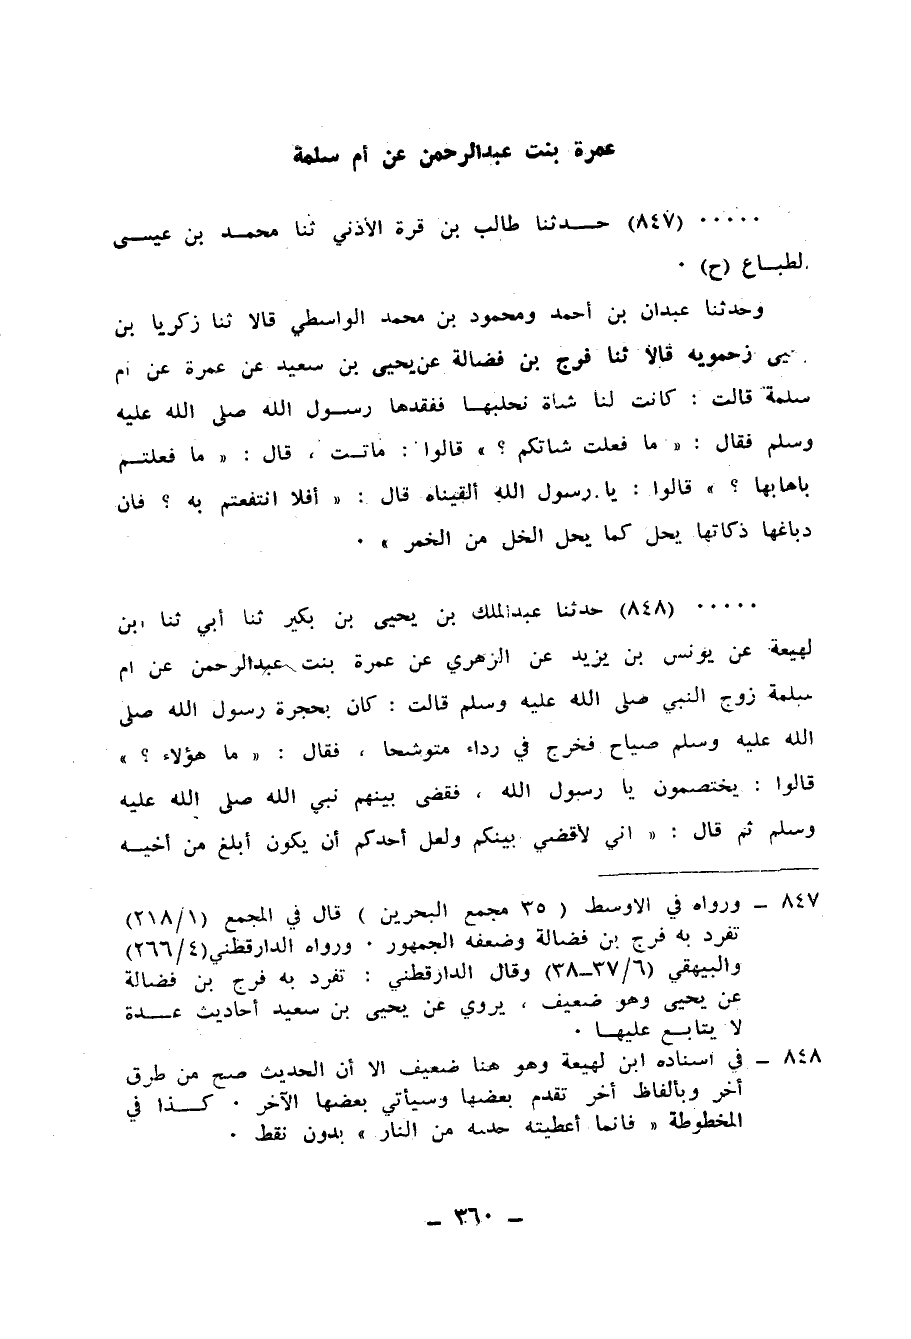 عمرة بنت عبدالرحمن عن أم سلمة
٠٠٠٠٠ (٨٤٧) حـــدثنا طالب بن قرة الأذني ثنا محمـــد بن عيســـى
لطبـــاع (ح) ٠
وحدثنا عبدان بن أحمد ومحمود بن محمد الواسطي قالا ثنا زكريا بن
يى زحمويه قالا ثنا فرج بن فضالة عن يحيى بن سعيد عن عمرة عن أم
سلمة قالت : كانت لنا شاة نحلبهـــا ففقدها رســـول الله صلى الله عليه
وسلم فقال : « ما فعلت شاتكم ؟ » قالوا : ماتـــت ، قال : « ما فعلتـــم
باهابها ؟ » قالوا : يا رسول الله ألقيناه قال : « أفلا انتفعتم به ؟ فان
دباغها ذكاتها يحل كما يحل الخل من الخمر » ٠
٠٠٠٠٠ (٨٤٨) حدثنا عبدالملك بن يحيى بن بكير ثنا أبي ثنا ابن
لهيعة عن يونس بن يزيد عن الزهري عن عمرة بنت عبدالرحمن عن ام
سلمة زوج النبي صلى الله عليه وسلم قالت : كان بحجرة رسول الله صلى
الله عليه وسلم صياح فخرج في رداء متوشحا ، فقال : « ما هؤلاء ؟ »
قالوا : يختصمون يا رسول الله ، فقضى بينهم نبي الله صلى الله عليه
وسلم ثم قال : « اني لأقضي بينكم ولعل أحدكم أن يكون أبلغ من أخيـــه
٨٤٧ ــ ورواه في الاوسط ( ٣٥ مجمع البحرين ) قال في المجمع (٢١٨/١)
تفرد به فرج بن فضالة وضعفه الجمهور ٠ ورواه الدارقطني (٢٦٦/٤)
والبيهقي (٣٧/٦ــ٣٨) وقال الدارقطني : تفرد به فرج بن فضالة
عن يحيى وهو ضعيف ، يروي عن يحيى بن سعيد أحاديث عـــدة
لا يتابـــع عليهـــا ٠
٨٤٨ ــ في اسناده ابن لهيعة وهو هنا ضعيف الا أن الحديث صح من طرق
أخر وبألفاظ أخر تقدم بعضها وسيأتي بعضها الآخر ٠ كـــذا في
المخطوطة « فانما أعطيته حدىه من النار » بدون نقط ٠
ــ ٣٦٠ ــ